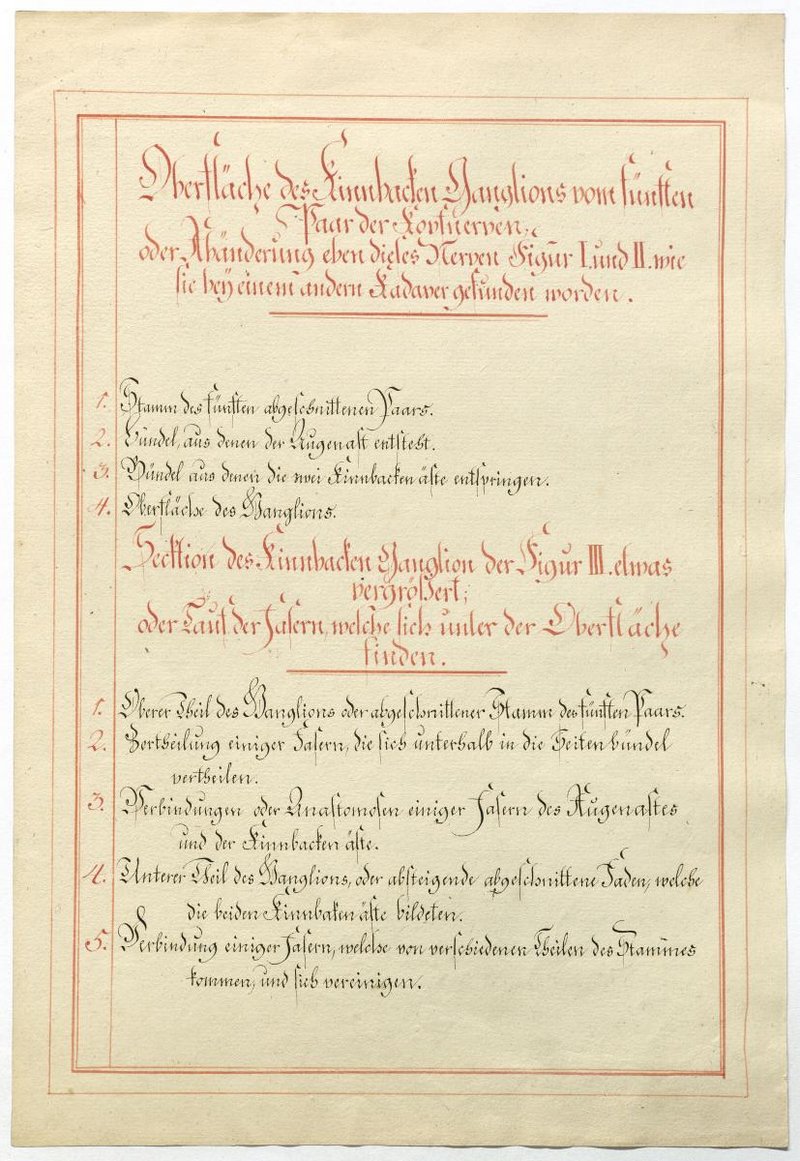 Oberfläche des Kinnbacken Ganglions vom fünften
Paar der Kopfnerven,
oder Abänderung eben dieses Nerven Figur I. und II. wie
sie bey einem andern Kadaver gefunden worden.
1. Stamm des fünften abgeschnittenen Paars.
2. Bündel, aus denen der Augenast entsteht.
3. Bündel aus denen die zwei Kinnbacken äste entspringen.
4. Oberfläche des Ganglions.
Secktion des Kinnbacken Ganglion der Figur III. etwas
vergrößert;
oder Lauf der Fasern, welche sich unter der Oberfläche
finden.
1. Oberer Theil des Ganglions oder abgeschnittener Stamm des fünften Paars.
2. Zertheilung einiger Fasern, die sich unterhalb in die Seiten bündel
vertheilen.
3. Verbindungen oder Anastomosen einiger Fasern des Augenastes
und der Kinnbacken äste.
4. Unterer Theil des Ganglions, oder absteigende abgeschnittene Fäden, welche
die beiden Kinnbaken äste bildeten.
5. Verbindung einiger Fasern, welche von verschiedenen Theilen des Stammes
kommen, und sich vereinigen.